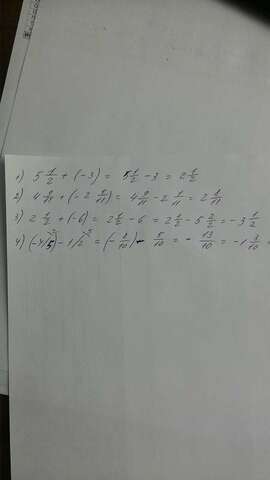 1) 5 1/2 + (-3) = 5 1/2 - 3 = 2 1/2
2) 4 9/11 + (-2 = 4 9/11 - 2 = 2
3) 2 1/2 + (-6) = 2 1/2 - 6 = 2 1/2 - 5 2/2 = -3 1/2
4) (-4/5) - 1/2 = (-8/10) - 5/10 = - 13/10 = -1 3/10 =